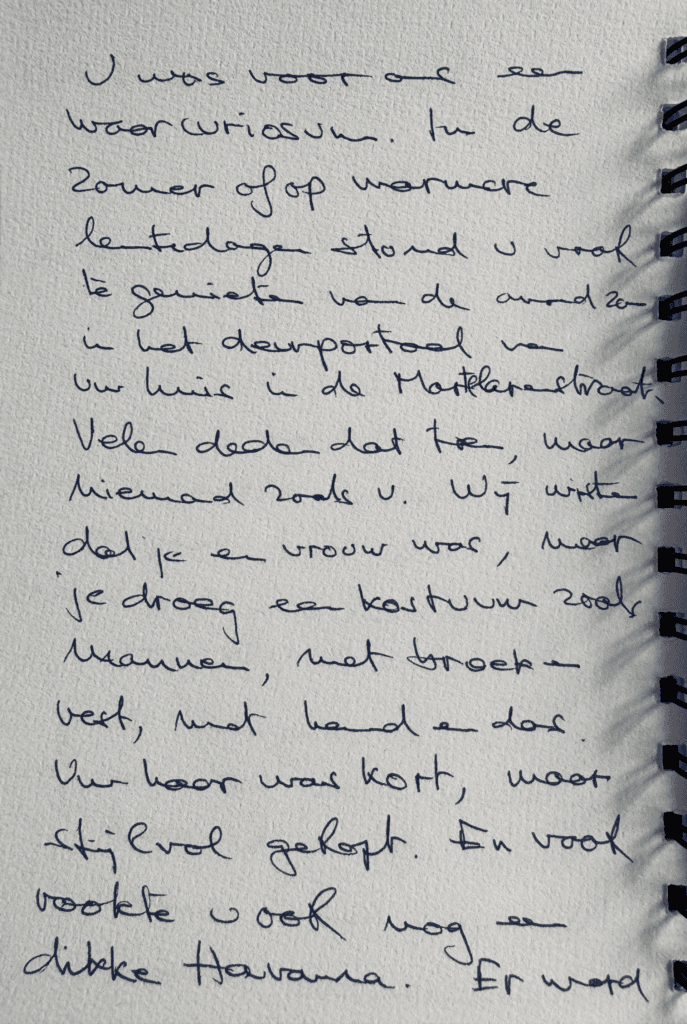 U was voor ons een
waar curiosum. In de
zomer of op warmere
lentedagen stond u vaak
te genieten van de avondzon
in het deurportaal van
uw huis in de Martelarenstraat.
Velen deden dat toen, maar
niemand zoals u. Wij wisten
dat je en vrouw was, maar
je droeg een kostuum zoals
mannen, met broek en
vest, met hemd en das.
Uw haar was kort, maar
stijlvol gekapt. En vaak
rookte u ook nog een
dikke Havanna. Er werd